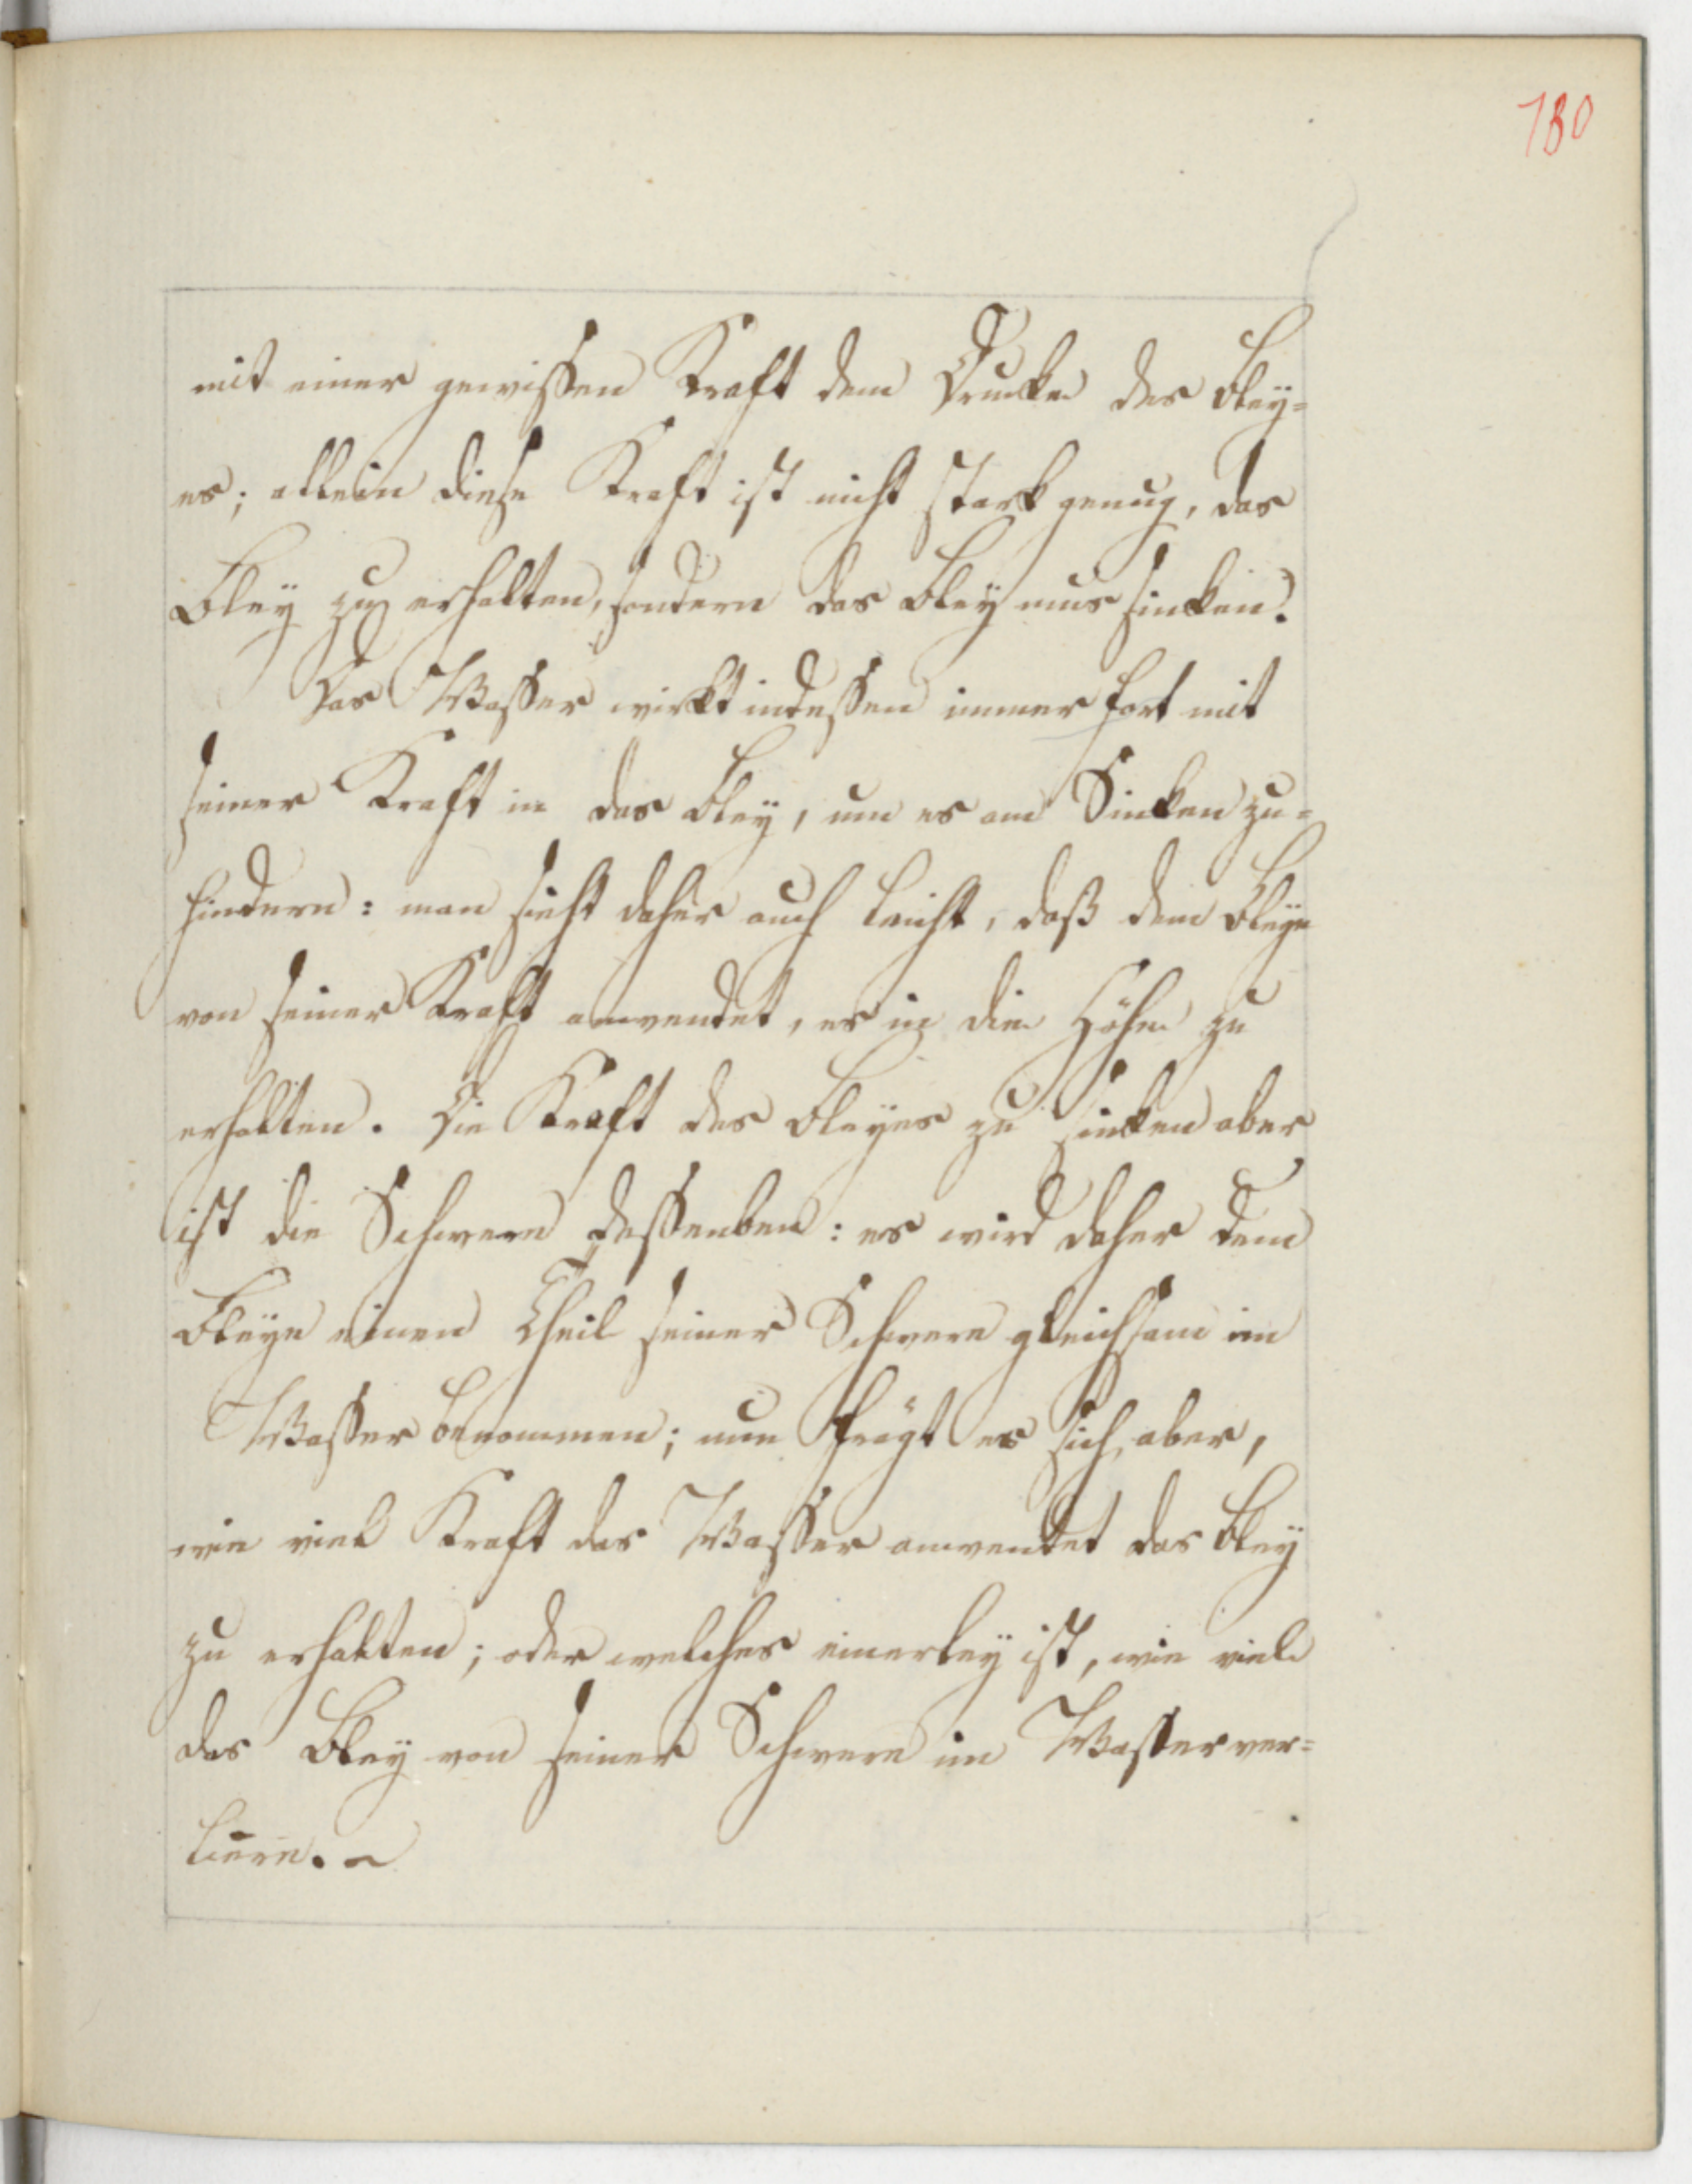 180
mit einer gewissen Kraft dem Drucke des Bley=
es; allein diese Kraft ist nicht stark genug, das
Bley zu erhalten, sondern das Bley mus sinken.
Das Wasser wirkt indessen immer fort mit
seiner Kraft in das Bley, um es am Sinken zu=
hindern: man sieht daher auch leicht, daß dem Bleye
von seiner Kraft anwendet, es in die Höhe zu
erhalten. Die Kraft des Bleyes zu sinken aber
ist die Schwere desselben: es wird daher dem
Bleye einen Theil seiner Schwere gleichsam im
Wasser benommen; nun frägt es sich aber,
wie viel Kraft das Wasser anwendet das Bley
zu erhalten; oder welches einerley ist, wie viel
das Bley von seiner Schwere im Wasser ver=
liere.